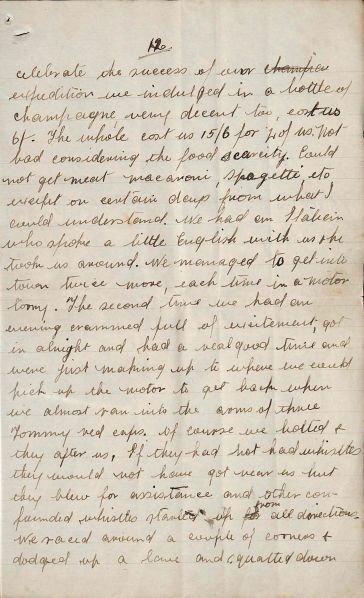 12.
celebrate the success of our champion
expedition we indulged in a bottle of
champagne very decent too, cost us
6f. The whole cost us 15/6 for 4 of us. Not
bad considering the food scarcity. Could
not get meat macaroni, spagetti, etc
except on certain days from what I
could understand. We had an Italian
who spoke a little English with us & he
took us around. We managed to get into
town twice more, each time in a motor
lorry. The second time we had an
evening crammed full of excitement, got
in alright and had a real good time and
were just making up to where we could
pick up the motor to get back when
we almost ran into the arms of three
Tommy red caps. Of course we bolted &
they after us. If they had not had whistles
they would not have got near us but
they blew for assistance and other con-
founded whistles started up from all directions
We raced around a couple of corners &
dodged up a lane and squatted down